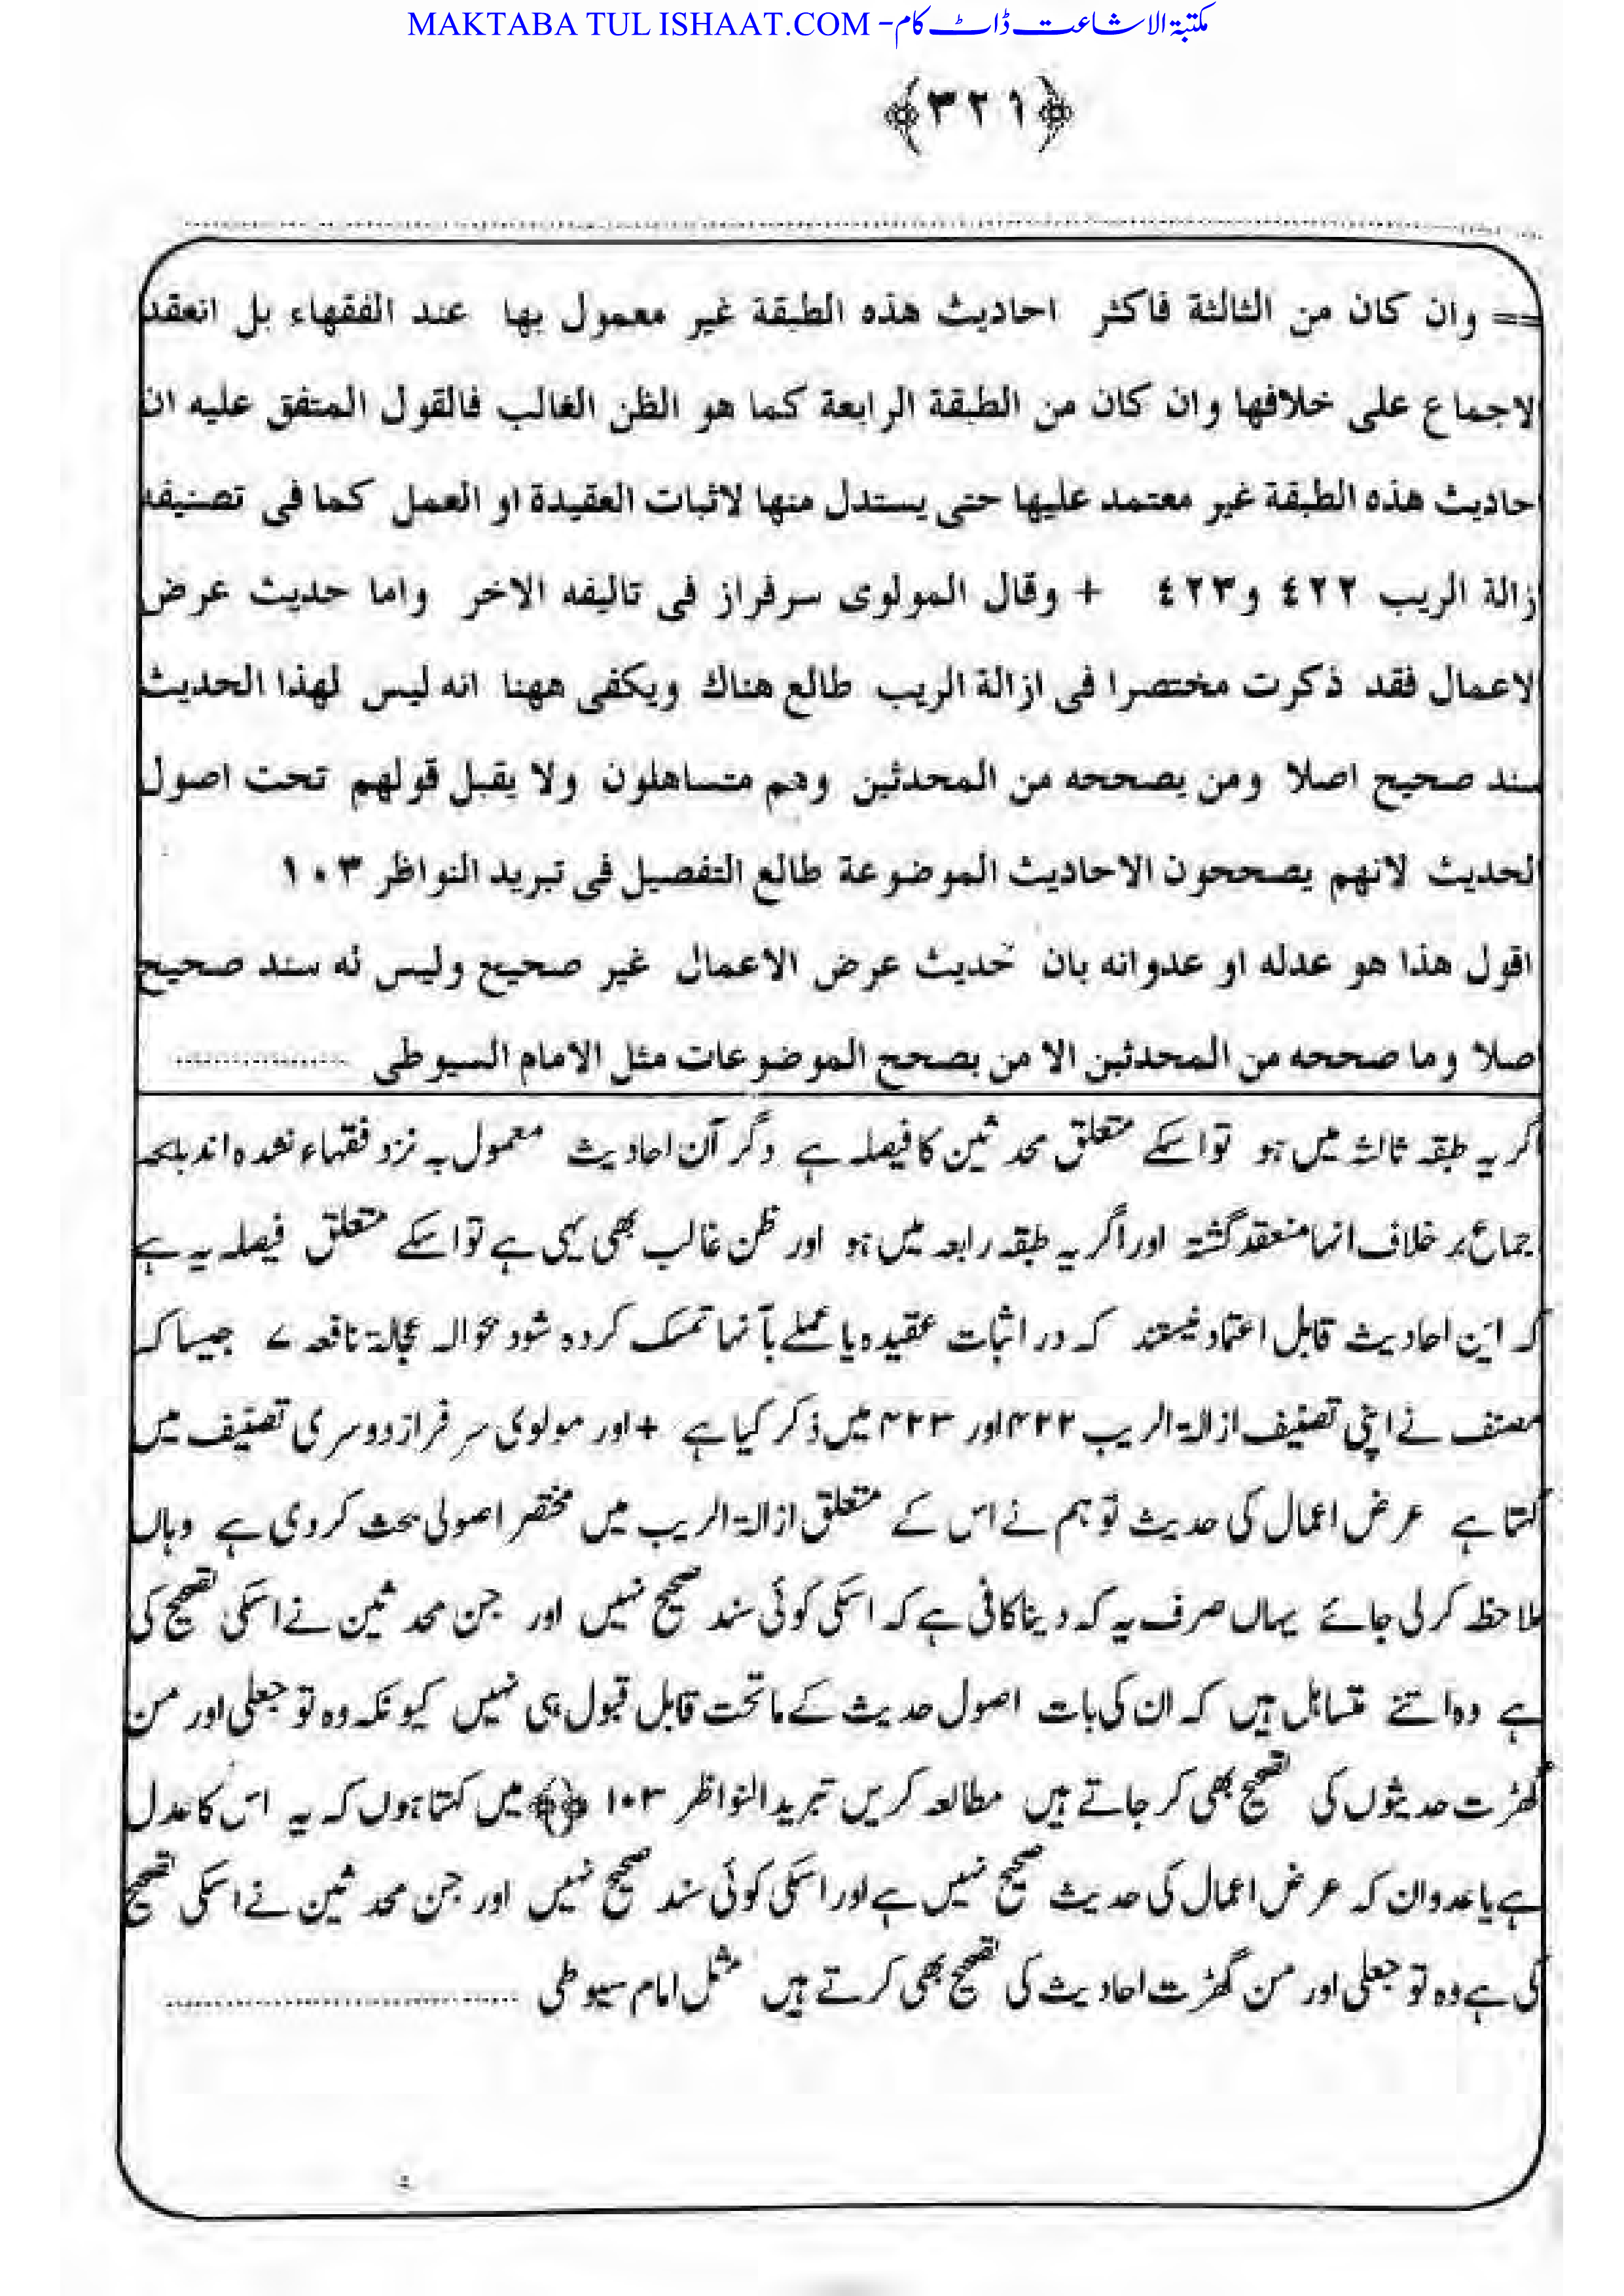 MAKTABA TUL ISHAAT.COM - مکتبۃ الاشاعت ڈاٹ کام
﴿٣٢١﴾
== وان كان من الثالثة فاكثر احاديث هذه الطبقة غير معمول بها عند الفقهاء بل انعقد
لاجماع على خلافها وان كان من الطبقة الرابعة كما هو الظن الغالب فالقول المتفق عليه ان
حاديث هذه الطبقة غير معتمد عليها حتى يستدل منها لاثبات العقيدة او العمل كما فى تصنيفه
زالة الريب ٤٢٢ و٤٢٣ + وقال المولوى سرفراز فى تاليفه الاخر واما حديث عرض
لاعمال فقد ذكرت مختصرا فى ازالة الريب طالع هناك ويكفى ههنا انه ليس لهذا الحديث
سند صحيح اصلا ومن يصححه من المحدثين وهم متساهلون ولا يقبل قولهم تحت اصول
لحديث لانهم يصححون الاحاديث الموضوعة طالع التفصيل فى تبريد النواظر ١٠٣
اقول هذا هو عدله او عدوانه بان حديث عرض الاعمال غير صحيح وليس له سند صحيح
صلا وما صححه من المحدثين الا من يصحح الموضوعات مثل الامام السيوطى ..................
اگر یہ طبقہ ثالثہ میں ہو تو اسکے متعلق محدثین کا فیصلہ ہے وگر آن احادیث معمول بہ نزد فقہاء نشدہ اند بلکہ
اجماع بر خلاف انہا منعقد گشتہ اور اگر یہ طبقہ رابعہ میں ہو اور ظن غالب بھی یہی ہے تو اسکے متعلق فیصلہ یہ ہے
کہ این احادیث قابل اعتماد نیستند کہ در اثبات عقیدہ یا عملے بآنہا تمسک کردہ شود بحوالہ عجالۃ نافعہ ۷ جیسا کہ
مصنف نے اپنی تصنیف ازالۃ الریب ۴۲۲ اور ۴۲۳ میں ذکر کیا ہے + اور مولوی سرفراز دوسری تصنیف میں
کہتا ہے عرض اعمال کی حدیث تو ہم نے اس کے متعلق ازالۃ الریب میں مختصر اصولی بحث کر دی ہے وہاں
ملاحظہ کرلی جائے یہاں صرف یہ کہ دینا کافی ہے کہ اسکی کوئی سند صحیح نہیں اور جن محدثین نے اسکی تصحیح کی
ہے وہ اتنے متساہل ہیں کہ ان کی بات اصول حدیث کے ماتحت قابل قبول ہی نہیں کیونکہ وہ تو جعلی اور من
گھڑت حدیثوں کی تصحیح بھی کر جاتے ہیں مطالعہ کریں تبرید النواظر ۱۰۳ ﴿﴾ میں کہتا ہوں کہ یہ اس کا عدل
ہے یا عدوان کہ عرض اعمال کی حدیث صحیح نہیں ہے اور اسکی کوئی سند صحیح نہیں اور جن محدثین نے اسکی تصحیح
کی ہے وہ تو جعلی اور من گھڑت احادیث کی تصحیح بھی کرتے ہیں مثل امام سیوطی ..................